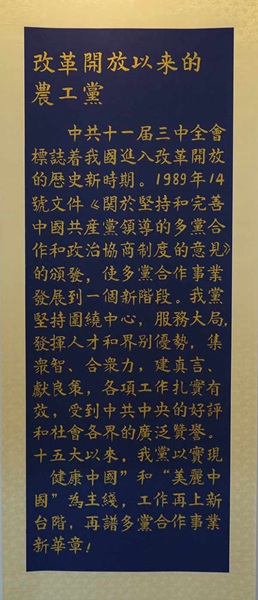 改革開放以來的
農工黨
中共十一届三中全會
標誌着我國進入改革開放
的歷史新時期。1989年14
號文件《關於堅持和完善
中國共産黨領導的多黨合
作和政治協商制度的意見》
的頒發，使多黨合作事業
發展到一個新階段。我黨
堅持圍繞中心，服務大局，
發揮人才和界别優勢，集
衆智、合衆力，建真言、
獻良策，各項工作扎實有
效，受到中共中央的好評
和社會各界的廣泛贊譽。
十五大以來，我黨以實現
健康中國”和“美麗中
國”為主綫，工作再上新
台階，再譜多黨合作事業
新華章！